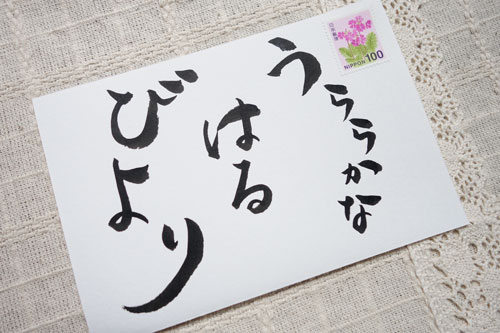 うららかな
はる
びより
日本郵便
NIPPON 100